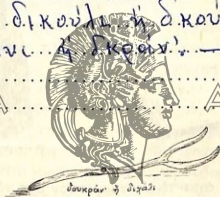 δικούλι, ἡ δικού
νι. ἡ δκράνι. —
δουκράν' ἢ διχάλι